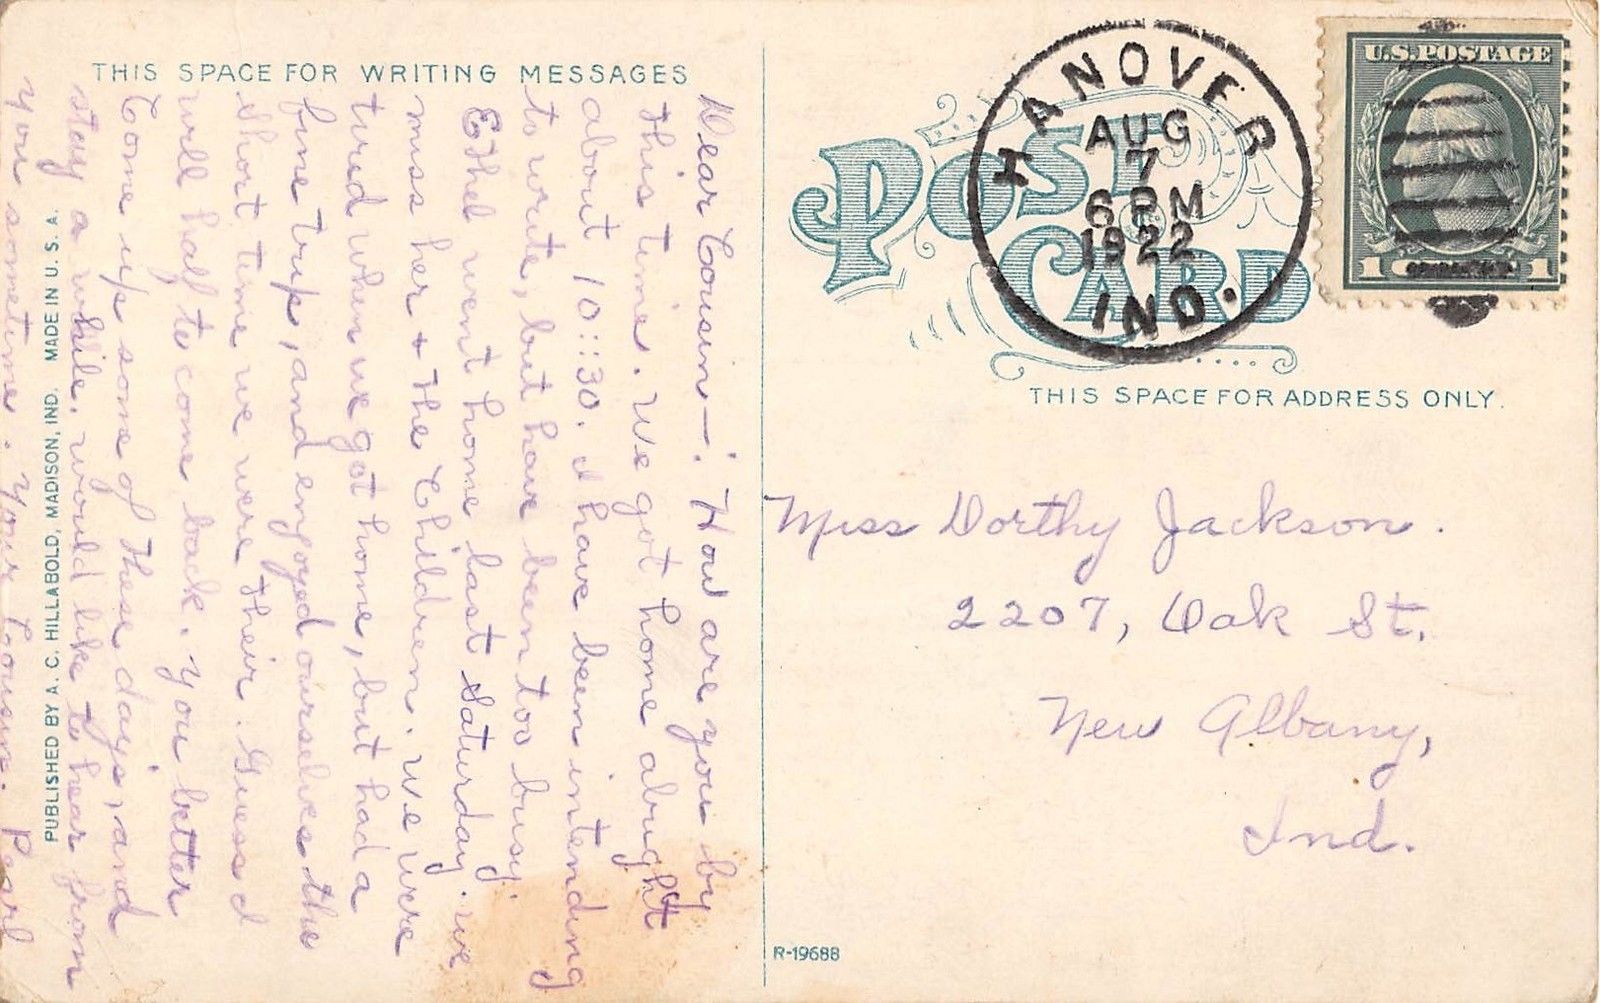 THIS SPACE FOR WRITING MESSAGES
Dear Cousin—: How are you by
this time. We got home abught
about 10::30. I have been intending
to write, but have been too busy.
Ethel went home last Saturday. we
miss her + the Children. We were
tired when we got home, but had a
fine trip, and enjoyed ourselves the
short time we were their. Guess I
will half to come back. you better
Come up some of these days, and
stay a while. would like to hear from
you sometime. Your Cousin. Pearl
PUBLISHED BY A. C. HILLABOLD, MADISON, IND. MADE IN U. S. A.
POST CARD
HANOVER
AUG
7
6 PM
1922
IND.
U.S. POSTAGE
1 1
THIS SPACE FOR ADDRESS ONLY.
Miss Dorthy Jackson.
2207, Oak St,
New Albany,
Ind.
R-19688